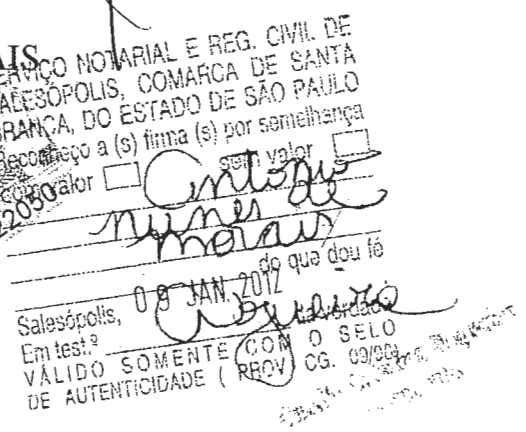 AIS
SERVIÇO NOTARIAL E REG. CIVIL DE
SALESÓPOLIS, COMARCA DE SANTA
BRANCA, DO ESTADO DE SÃO PAULO
Reconheço a (s) firma (s) por semelhança
com valor sem valor
22050
Antonio
nunes de
morais
do que dou fé
Salesópolis, 09 JAN. 2012
Em test.º da verdade
VÁLIDO SOMENTE COM O SELO
DE AUTENTICIDADE ( PROV CG.